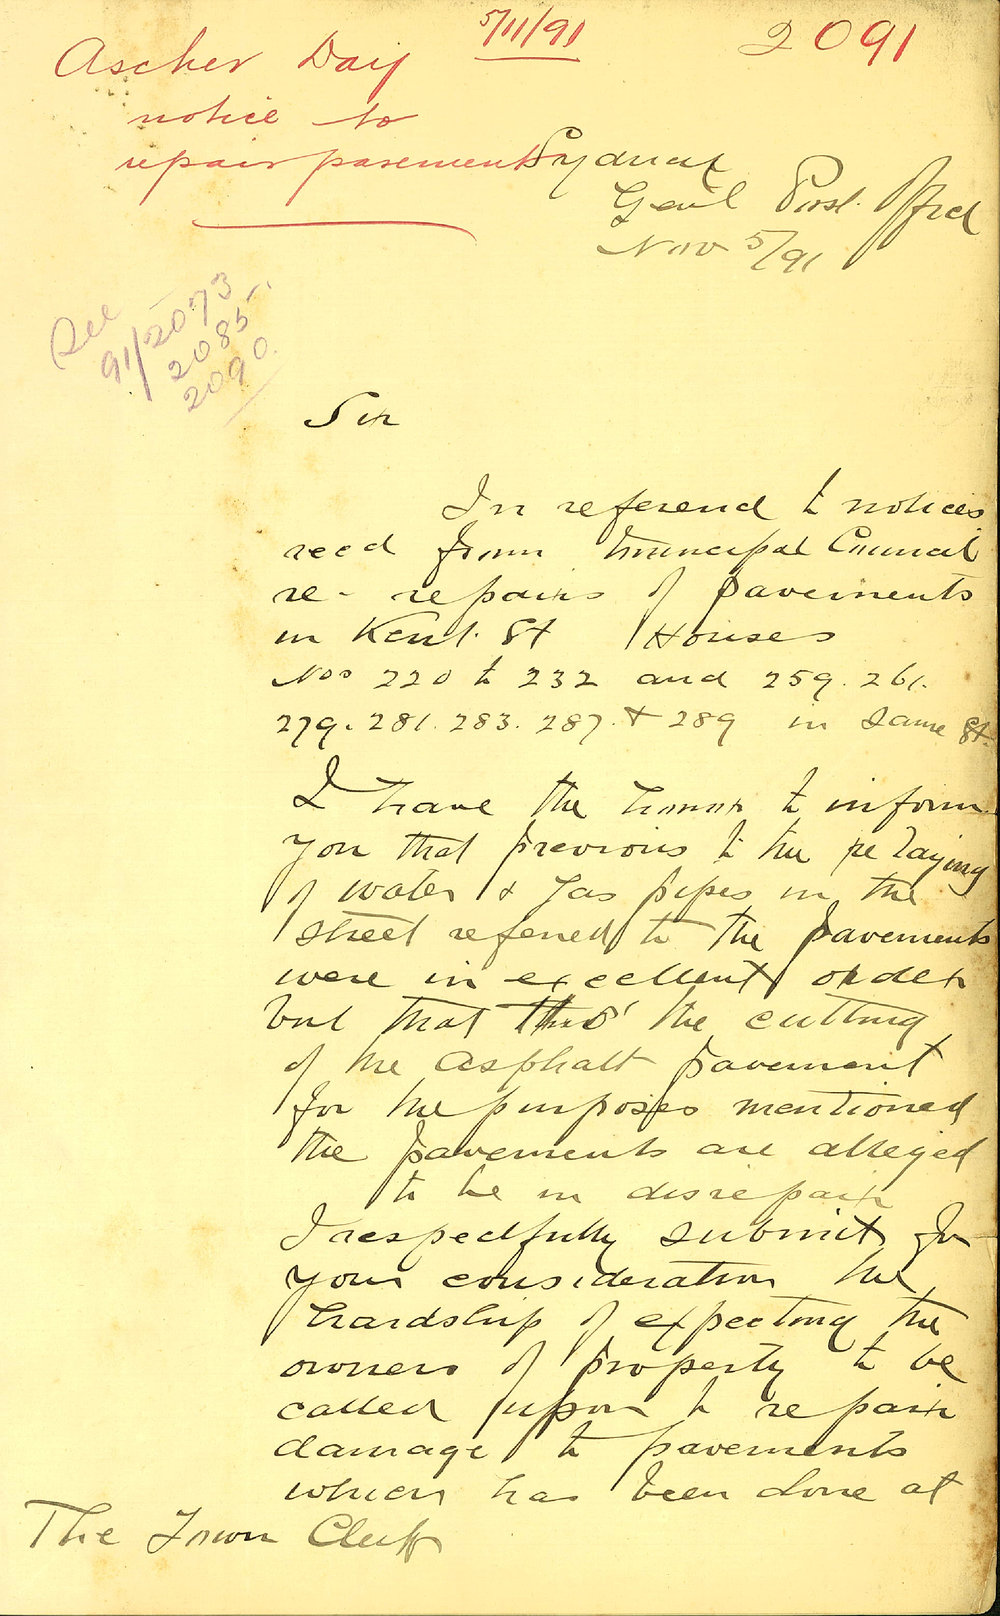 5/11/91
2091
Ascher Day
notice to
repair pavements
Sydney
Genl Post Office
Nov 5/91
See
91/2073
2085
2090
Sir
In reference to notices
recd from Municipal Council
re- repairs of pavements
in Kent St Houses
Nos 220 to 232 and 259. 261.
279. 281. 283. 287. + 289 in same St.
I have the honor to inform
you that previous to the re laying
of water & Gas pipes in the
street referred to the pavements
were in excellent order
but that thro' the cutting
of the asphalt pavement
for the purposes mentioned
the pavements are alleged
to be in disrepair
I respectfully submit for
your consideration the
hardship of expecting the
owners of property to be
called upon to repair
damage to pavements
which has been done at
The Town Clerk